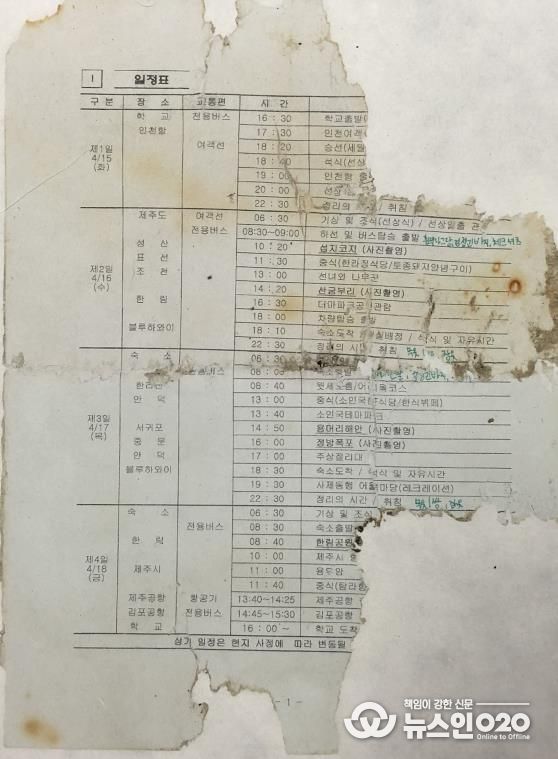 I 일정표
구 분 장 소 교통편 시 간
제1일 4/15 (화) 학 교 전용버스 16 : 30 학교출발
인천항 17 : 30 인천여객
여객선 18 : 20 승선(세월
18 : 40 석식(선상
19 : 00 인천항 출
20 : 00 선상
22 : 30 정리의 / 취침
제2일 4/16 (수) 제주도 여객선 06 : 30 기상 및 조식(선상식) / 선상일출 관
전용버스 08:30~09:00 하선 및 버스탑승 출발
성 산 10 : 20 섭지코지 (사진촬영)
표 선 11 : 30 중식(한라정식당/토종돼지양념구이)
조 천 13 : 00 선녀와 나무꾼
14 : 20 산굼부리 (사진촬영)
한 림 16 : 30 더마파크공연관람
18 : 00 차량탑승 출발
블루하와이 18 : 10 숙소도착 / 실배정 / 석식 및 자유시간
22 : 30 정리의 시 취침
제3일 4/17 (목) 숙 소 06 : 30
08 : 00 숙소출발
한라산 08 : 40 윗세오름/어리목코스
안 덕 13 : 00 중식(소인국 식당/한식뷔페)
13 : 40 소인국테마파크
서귀포 14 : 50 용머리해안 (사진촬영)
중 문 16 : 00 정방폭포 (사진촬영)
안 덕 17 : 00 주상절리대
블루하와이 18 : 30 숙소도착 / 석식 및 자유시간
19 : 30 사제동행 어울 마당(레크레이션)
22 : 30 정리의 시간 / 취침
제4일 4/18 (금) 숙 소 06 : 30 기상 및 조식
전용버스 08 : 30 숙소출발
한 림 08 : 40 한림공원
10 : 00 제주시
제주시 11 : 00 용두암
11 : 40 중식(탐라
제주공항 항공기 13:40~14:25 제주공항
김포공항 전용버스 14:45~15:30 김포공항
학 교 16 : 00 ~ 학교 도착
상기 일정은 현지 사정에 따라 변동될
- 1 -
책임이 강한 신문
뉴스인020
Online to Offline